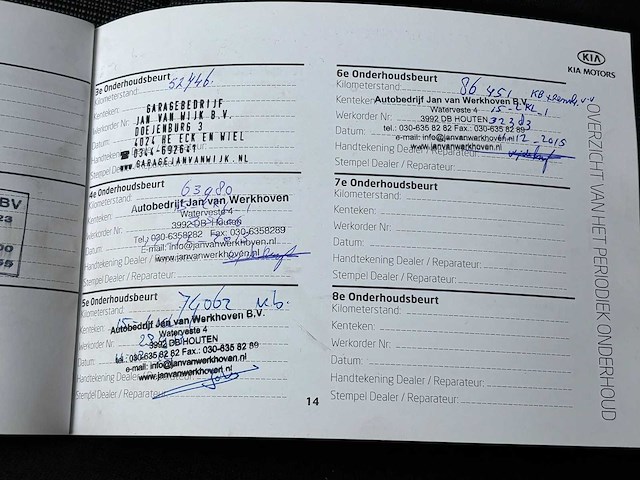 BV
23
00
65
3e Onderhoudsbeurt
Kilometerstand: 52446
GARAGEBEDRIJF
JAN VAN WIJK B.V.
DOEJENBURG 3
4024 HE ECK EN WIEL
☎ 0344-692641
WWW.GARAGEJANVANWIJK.NL
Kenteken:
Werkorder Nr:
Datum:
Handtekening Dealer
Stempel Dealer
4e Onderhoudsbeurt
Kilometerstand: 63980
Autobedrijf Jan van Werkhoven
Waterveste 4
3992 DB Houten
Tel.: 030-6358282 Fax: 030-6358289
E-mail: info@janvanwerkhoven.nl
www.janvanwerkhoven.nl
Kenteken:
Werkorder Nr:
Datum:
Handtekening Dealer
Stempel Dealer / Reparateur:
5e Onderhoudsbeurt
Kilometerstand: 74062 n.b.
Autobedrijf Jan van Werkhoven B.V.
Waterveste 4
3992 DB HOUTEN
tel.: 030-635 82 82 Fax.: 030-635 82 89
e-mail: info@janvanwerkhoven.nl
www.janvanwerkhoven.nl
Kenteken:
Werkorder Nr:
Datum:
Handtekening Dealer
Stempel Dealer / Reparateur:
14
KIA
KIA MOTORS
6e Onderhoudsbeurt
Kilometerstand: 86451
Kenteken:
Autobedrijf Jan van Werkhoven B.V.
Waterveste 4
Werkorder Nr: 3992 DB HOUTEN 32383
tel.: 030-635 82 82 Fax.: 030-635 82 89
Datum: 12-2015
www.janvanwerkhoven.nl
Handtekening Dealer / Reparateur:
Stempel Dealer / Reparateur:
7e Onderhoudsbeurt
Kilometerstand:
Kenteken:
Werkorder Nr:
Datum:
Handtekening Dealer / Reparateur:
Stempel Dealer / Reparateur:
8e Onderhoudsbeurt
Kilometerstand:
Kenteken:
Werkorder Nr:
Datum:
Handtekening Dealer / Reparateur:
Stempel Dealer / Reparateur:
OVERZICHT VAN HET PERIODIEK ONDERHOUD